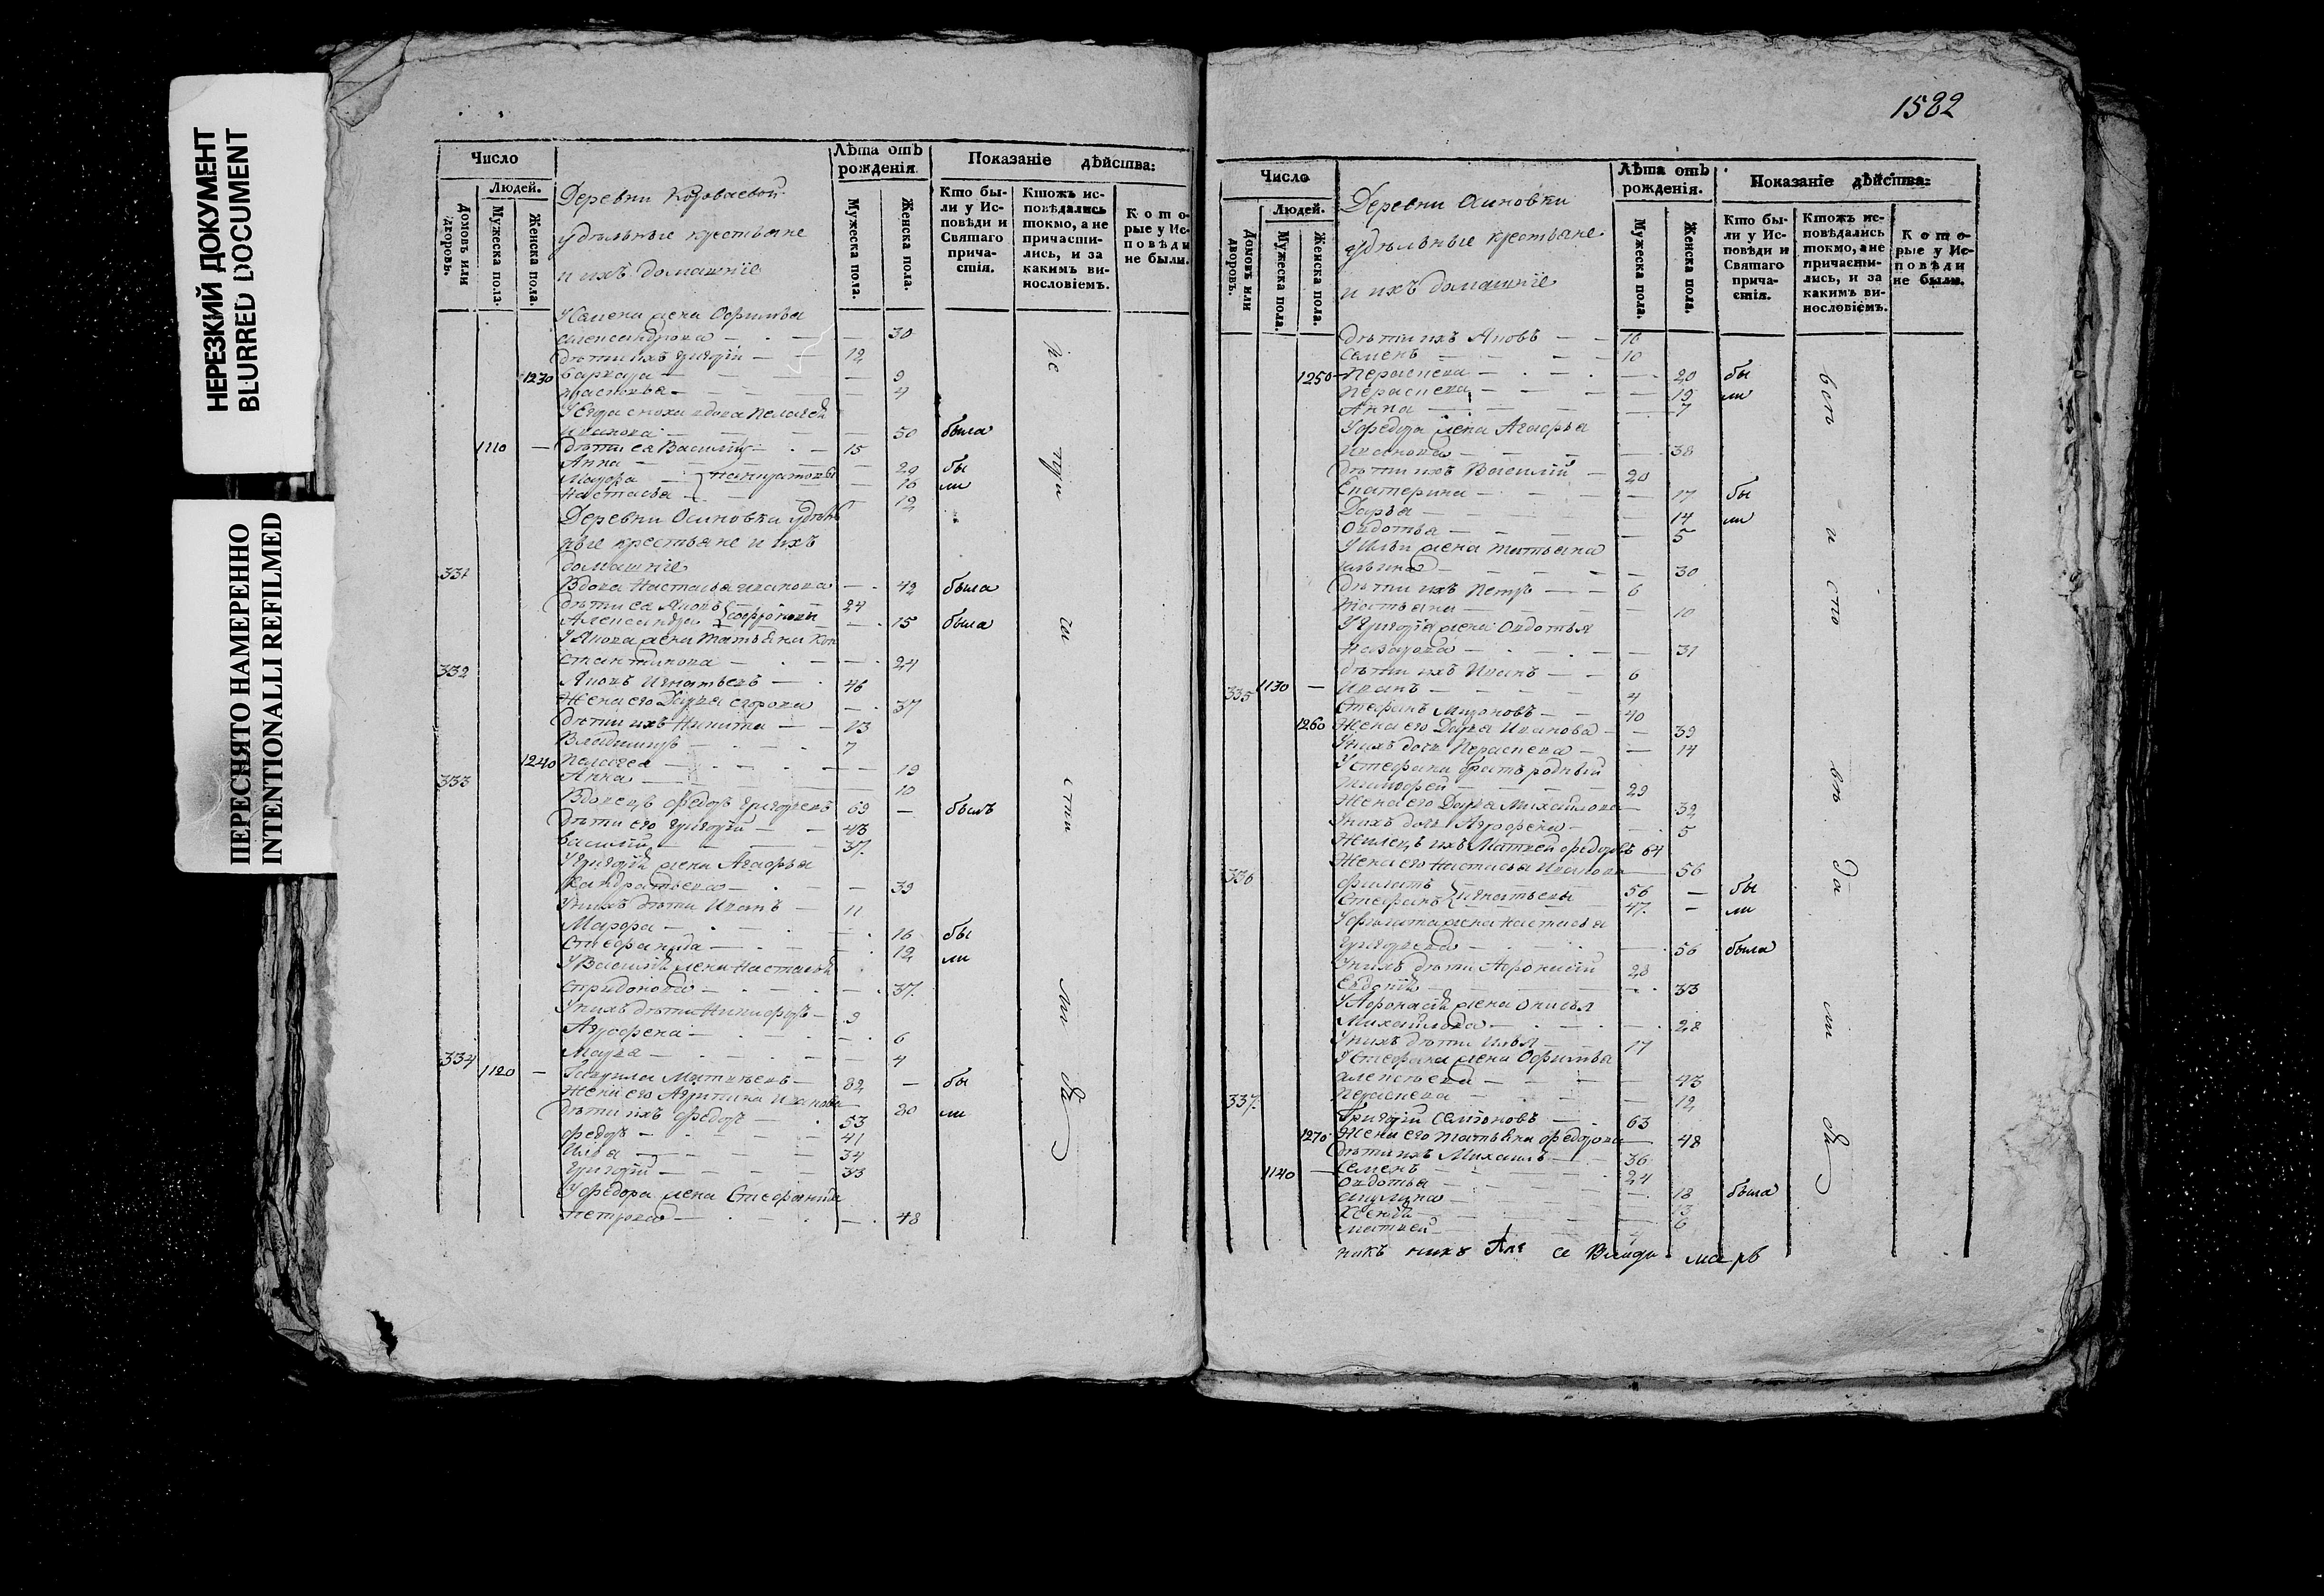 НЕРЕЗКИЙ ДОКУМЕНТ
BLURRED DOCUMENT
ПЕРЕСНЯТО НАМЕРЕННО
INTENTIONALLI REFILMED
Число
Людей.
Домовъ или дворовъ.
Мужеска пола.
Женска пола.
Деревни
удѣльные крестьяне
и ихъ домашніе
Лѣта отъ рожденія.
Мужеска пола.
Женска пола.
Показаніе дѣйства:
Кто бы-
ли у Ис-
повѣди и
Святаго
прича-
стія.
Ктожъ ис-
повѣдались
токмо, а не
причасти-
лись, и за
какимъ ви-
нословіемъ.
Кото-
рые у Ис-
повѣди
не были.
жена Офимья
александрова — 30
дѣти ихъ Григорій — 12
1230 Варвара — 9
— 4
вдова Пелагея
Иванова — 50 была
1110 — дѣти ея Василій — 15
Анна — 29 бы
Мавра — 16 ли
Настасья — 12
Деревни Осиновки удѣль
ные крестьяне и ихъ
домашніе
331 Вдова Настасья Иванова — 42 была
дѣти ея Яковъ — 24
Александра — 15 была
У Якова жена Татьяна Кон
стантинова — 24
332 Яковъ Игнатьевъ — 46
Жена его Дарья Егорова — 37
дѣти ихъ Никита — 13
Владимиръ — 7
1240 Пелагея — 19
333 Анна — 10
Вдовецъ Федоръ Григорьевъ 69 — былъ
дѣти его Григорій — 43
Василій — 37.
У Григорія жена Агафья
Кандратьева — 39
У нихъ дѣти Иванъ — 11
Марфа — 16 бы
Стефанида — 12 ли
У Василія жена Настасья
Спридонова — 37.
У нихъ дѣти Никифоръ — 9
Аграфена — 6
Мавра — 4
334 1120 — Гаврила Матвѣевъ — 82 — бы
Жена его Агрипина Иванова 80 ли
дѣти ихъ Федоръ — 53
Федоръ — 41
Илья — 34
Григорій — 33
У Федора жена Стефанида
Петрова — 48
1522
Число
Людей.
Домовъ или дворовъ.
Мужеска пола.
Женска пола.
Деревни Осиновки
удѣльные крестьяне
и ихъ домашніе
Лѣта отъ рожденія.
Мужеска пола.
Женска пола.
Показаніе дѣйства:
Кто бы-
ли у Ис-
повѣди и
Святаго
прича-
стія.
Ктожъ ис-
повѣдались
токмо, а не
причасти-
лись, и за
какимъ ви-
нословіемъ.
Кото-
рые у Ис-
повѣди
не были.
дѣти ихъ Яковъ — 16
Семенъ — 10
1250 Параскева — 20 бы
Параскева — 19 ли
Анна — 7
У Федора жена Агафья
Иванова — 38
дѣти ихъ Василій — 20
Екатерина — 17 бы
Дарья — 14 ли
Овдотья — 5
У Ильи жена Татьяна
— 30
дѣти ихъ Петръ — 6
Татьяна — 10
У Григорія жена Овдотья
Назарова — 31
дѣти ихъ Иванъ — 6
335 1130 — Иванъ — 4
Стефанъ Мироновъ — 40
1260 Жена его Дарья Иванова — 39
У нихъ дочь Параскева — 14
У Стефана братъ родный
Тимофей — 29
Жена его Дарья Михайлова — 32
У нихъ дочь Аграфена — 5
Жилецъ ихъ Матвей Федоровъ 64
336 Жена его Настасья Иванова — 56
Филатъ — 56 — бы
Стефанъ Игнатьевы 47. — ли
У Филата жена Настасья
Григорьева — 56 была
У нихъ дѣти Афонасій 28
— 33
У Афонасія жена Онисья
Михайлова — 28
У нихъ дѣти Илья — 17
У Стефана жена Офимья
алексѣева — 43
337. Параскева — 12
Григорій Семіоновъ — 63
1270 Жена его Татьяна Федорова — 48
дѣти ихъ Михаилъ — 36
1140 — Семенъ — 24
Овдотья — 18 была
Акулина — 13
Ксенія — 6
Матвей —